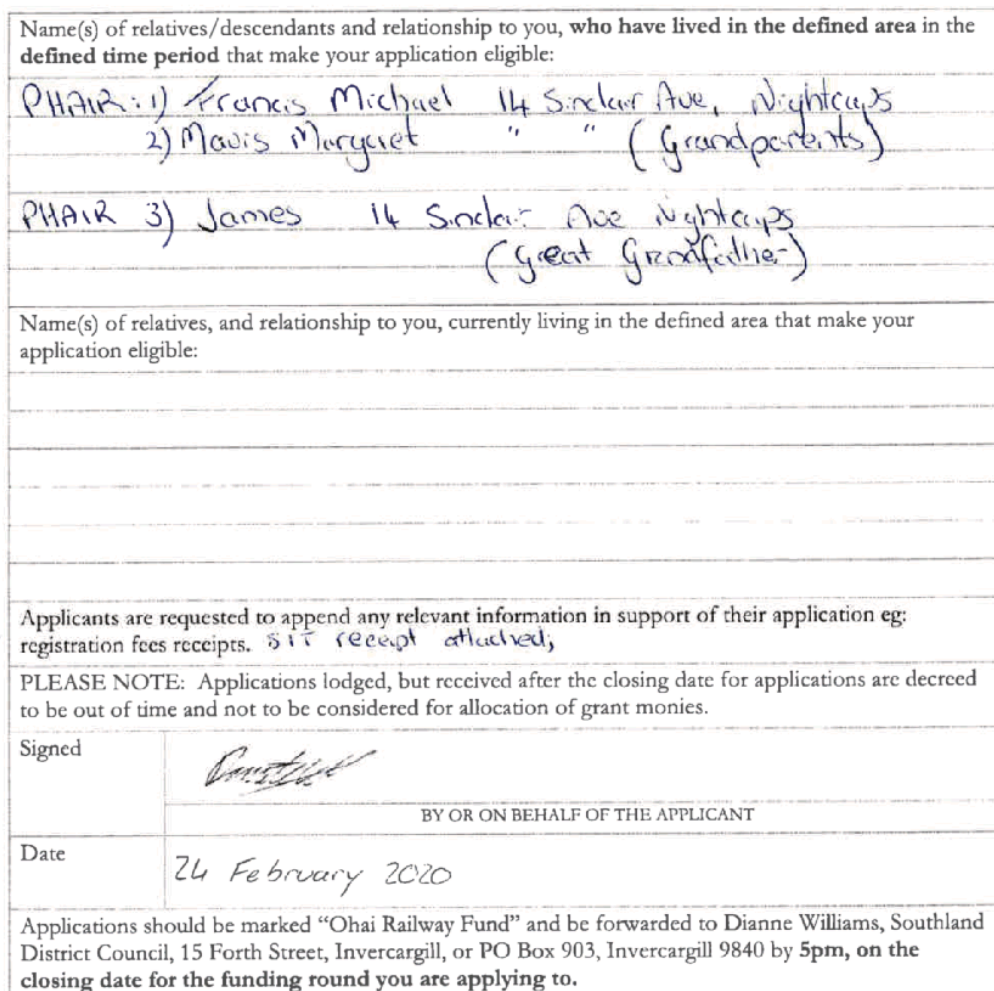 Name(s) of relatives/descendants and relationship to you, who have lived in the defined area in the
defined time period that make your application eligible:
PHAIR: 1) Francis Michael 14 Sinclair Ave, Nightcaps
2) Mavis Margaret " " (Grandparents)
PHAIR 3) James 14 Sinclair Ave Nightcaps
(Great Grandfather)
Name(s) of relatives, and relationship to you, currently living in the defined area that make your
application eligible:
Applicants are requested to append any relevant information in support of their application eg:
registration fees receipts. SIT receipt attached;
PLEASE NOTE: Applications lodged, but received after the closing date for applications are decreed
to be out of time and not to be considered for allocation of grant monies.
Signed
BY OR ON BEHALF OF THE APPLICANT
Date
24 February 2020
Applications should be marked “Ohai Railway Fund” and be forwarded to Dianne Williams, Southland
District Council, 15 Forth Street, Invercargill, or PO Box 903, Invercargill 9840 by 5pm, on the
closing date for the funding round you are applying to.